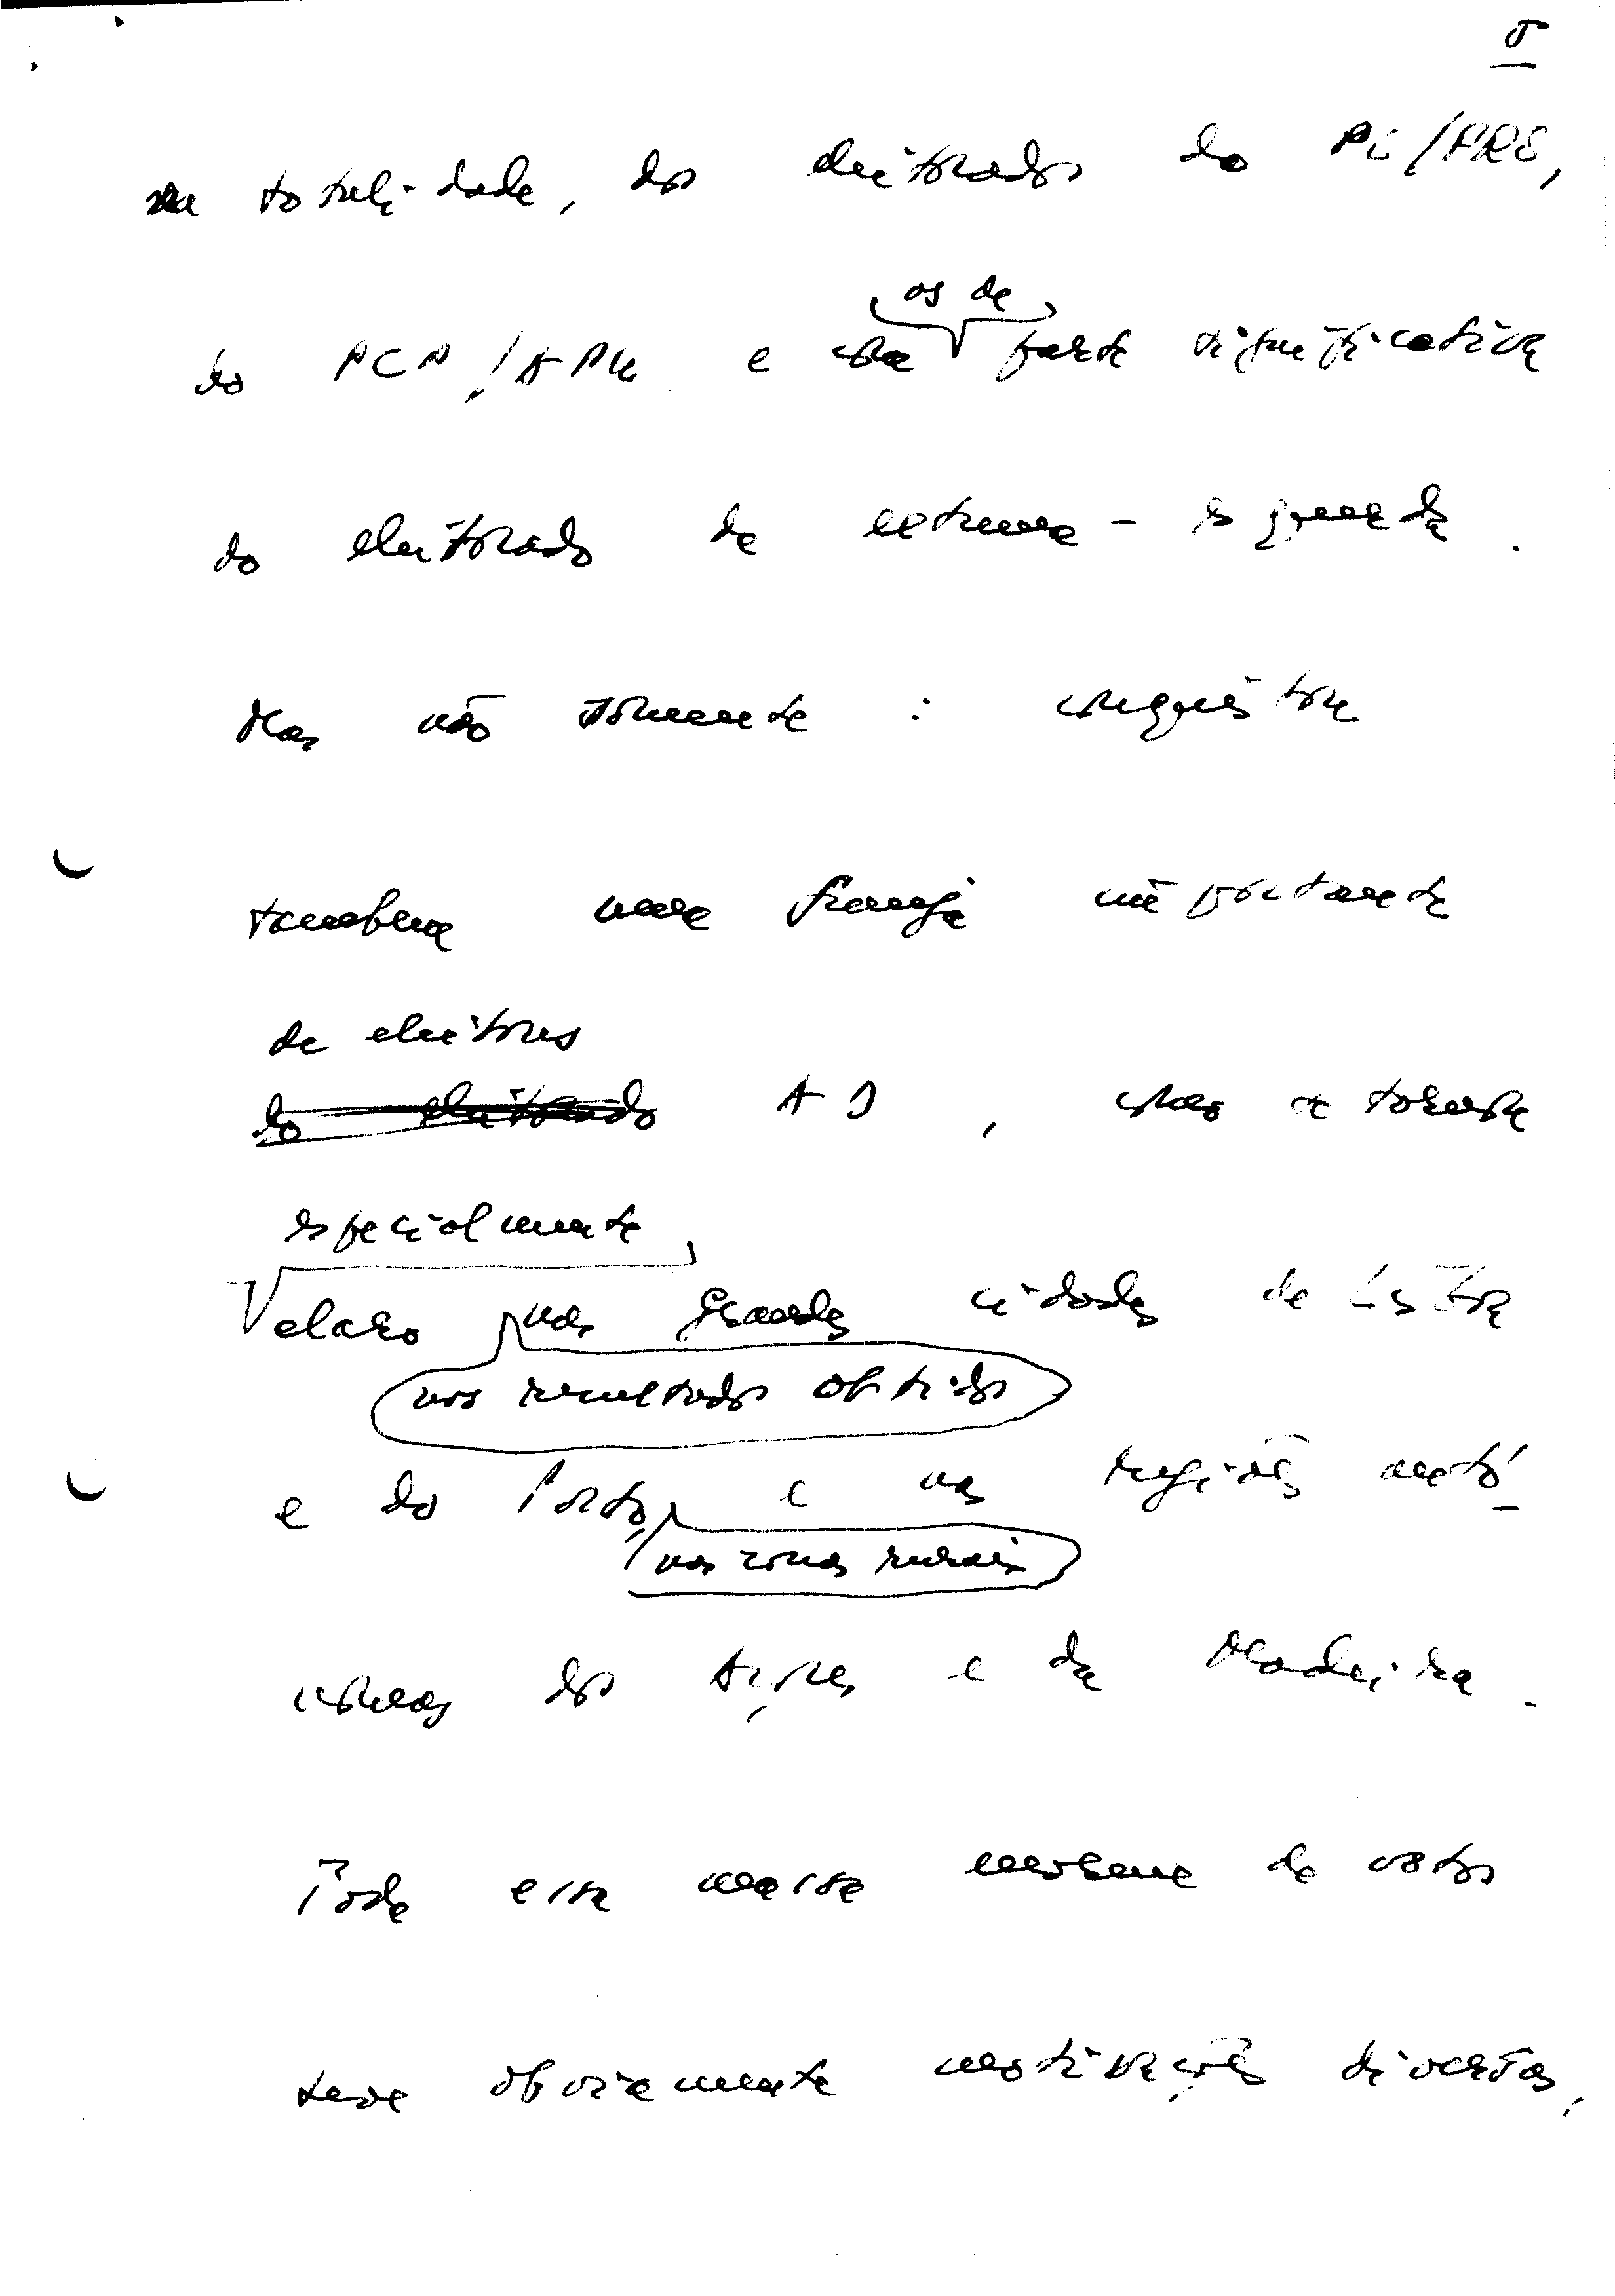 5
na totalidade, dos eleitorados do PS/PRS,
os de
do PCP/APU e parte significativa
do eleitorado de extrema-esquerda.
Mas não somente: conquistou
também uma franja importante
de eleitores
do eleitorado AD, como o torna
especialmente
claro nas grandes cidades de Lisboa
nos resultados obtidos
e do Porto, e nas regiões autó-
nas zonas rurais
nomas dos Açores e da Madeira.
Toda essa massa enorme de votos
teve obviamente motivações diversas,